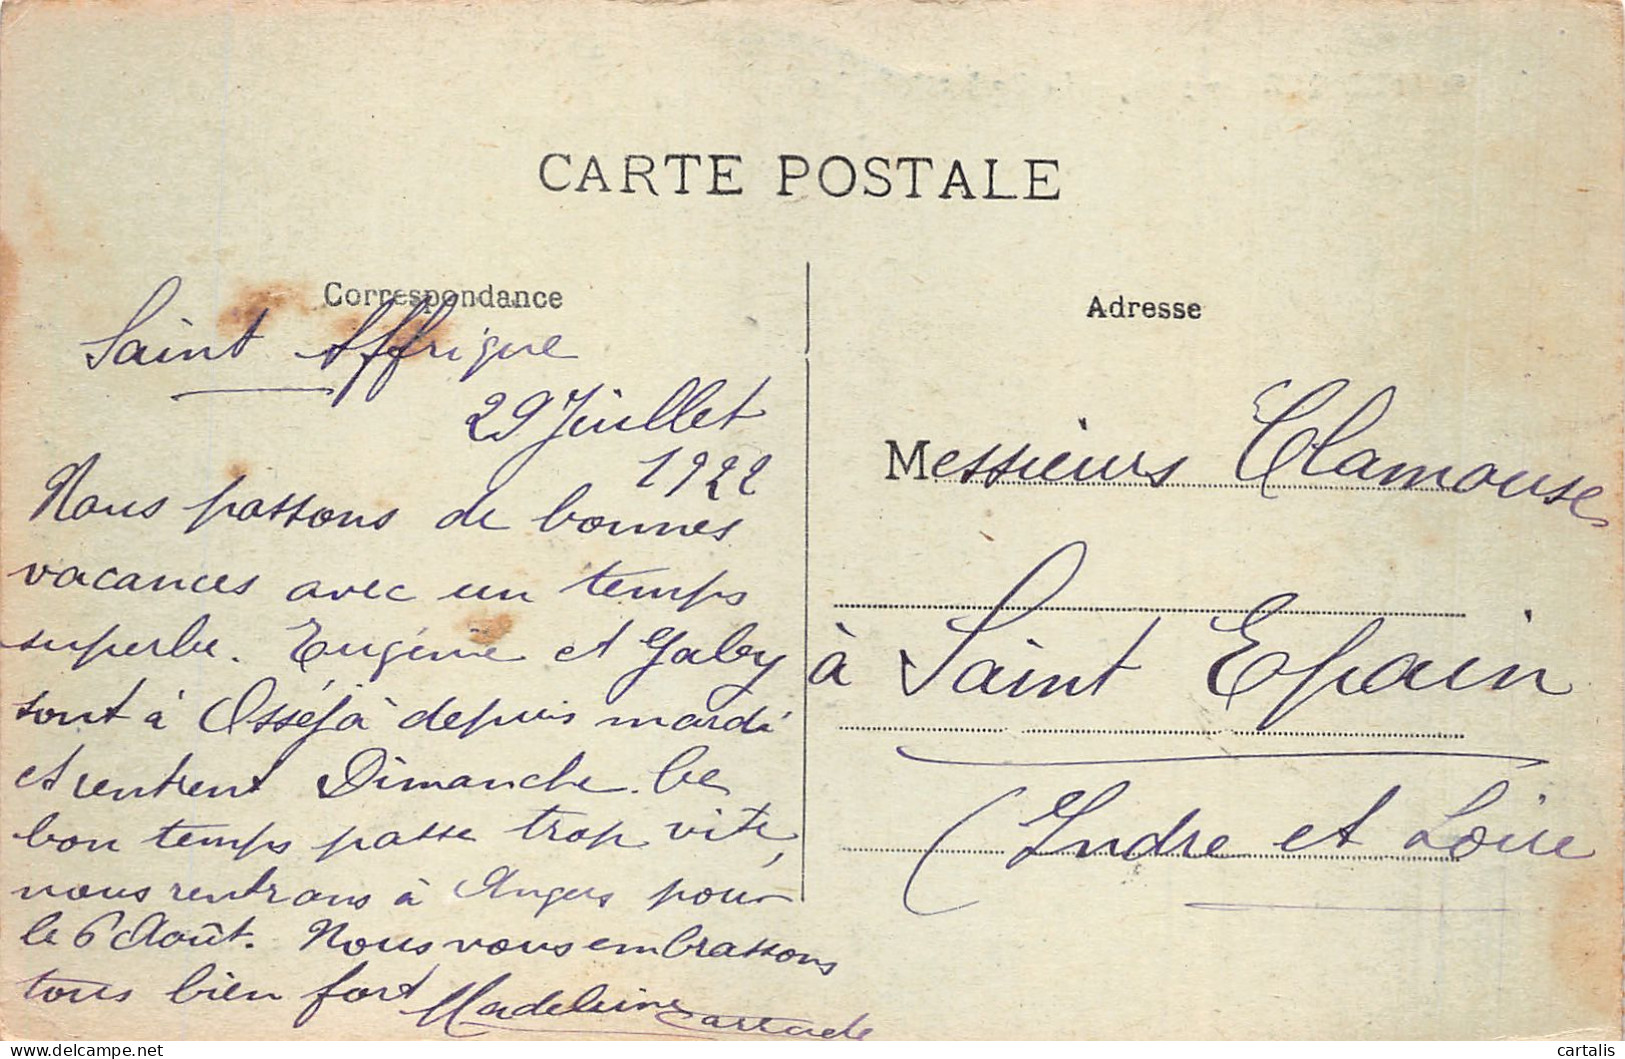 CARTE POSTALE
Correspondance
Saint Affrique
29 Juillet
1922
Nous passons de bonnes
vacances avec un temps
superbe. Eugénie et Gaby
sont à Osséja depuis mardi
et rentrent Dimanche. Ce
bon temps passe trop vite,
nous rentrons à Angers pour
le 6 Août. Nous vous embrassons
tous bien fort Madeleine
Adresse
Messieurs Clamouse
à Saint Epain
(Indre et Loire
cartalis